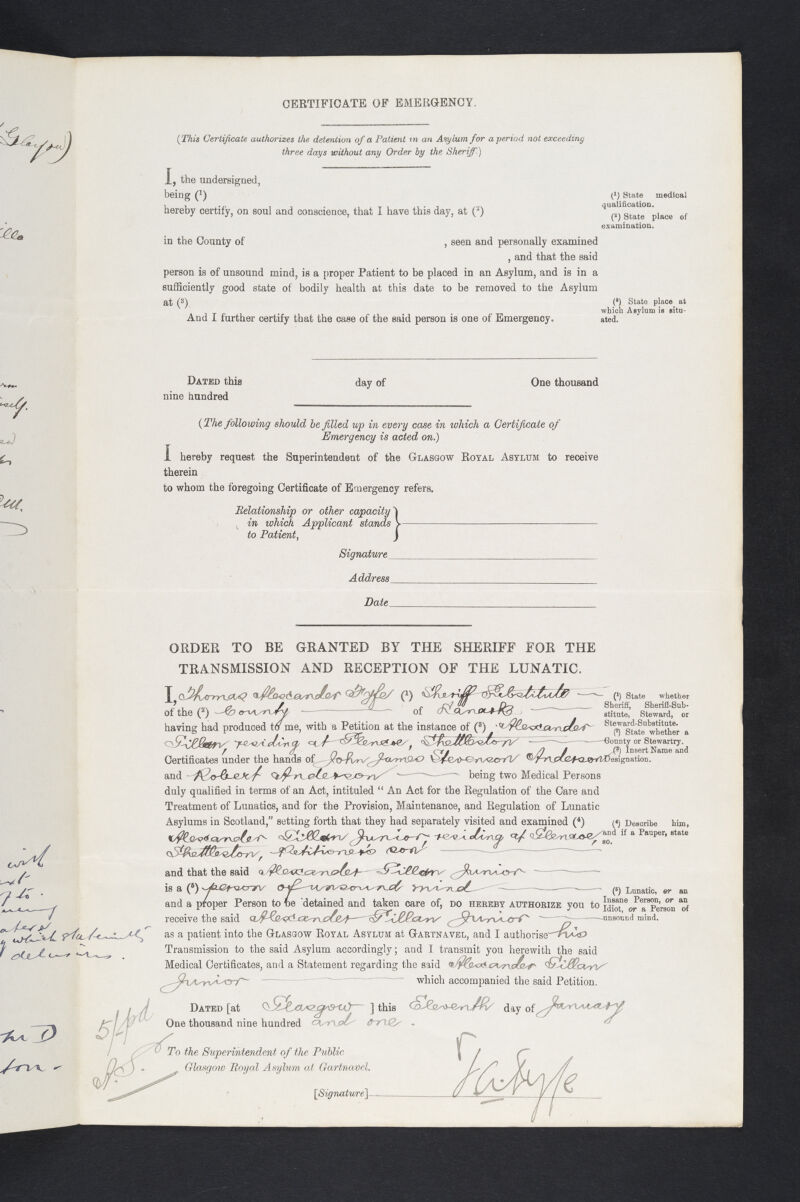 CERTIFICATE OF EMERGENCY.
(This Certificate authorizes the detention of a Patient in an Asylum for a period not exceeding
three days without any Order by the Sheriff.)
I, the undersigned,
being (¹)
(¹) State medical
qualification.
hereby certify, on soul and conscience, that I have this day, at (²)
(²) State place of
examination.
in the County of , seen and personally examined
, and that the said
person is of unsound mind, is a proper Patient to be placed in an Asylum, and is in a
sufficiently good state of bodily health at this date to be removed to the Asylum
at (³)
(³) State place at
which Asylum is situ-
ated.
And I further certify that the case of the said person is one of Emergency.
DATED this day of One thousand
nine hundred
(The following should be filled up in every case in which a Certificate of
Emergency is acted on.)
I hereby request the Superintendent of the GLASGOW ROYAL ASYLUM to receive
therein
to whom the foregoing Certificate of Emergency refers.
Relationship or other capacity
in which Applicant stands
to Patient,
Signature
Address
Date
ORDER TO BE GRANTED BY THE SHERIFF FOR THE
TRANSMISSION AND RECEPTION OF THE LUNATIC.
I, Thomas Alexander Fyfe (¹) Sheriff Substitute
of the (²) County of Lanark
having had produced to me, with a Petition at the instance of (³) Alexander
Gillan, residing at Glencoe, Shettleston
Certificates under the hands of John James Stevenson Anderson
and Robert Anderson being two Medical Persons
duly qualified in terms of an Act, intituled “ An Act for the Regulation of the Care and
Treatment of Lunatics, and for the Provision, Maintenance, and Regulation of Lunatic
Asylums in Scotland,” setting forth that they had separately visited and examined (⁴)
Alexander Gillan Junior residing at Glencoe,
Shettleston, Petitioner's son
and that the said Alexander Gillan Junior
is a (⁵) person of unsound mind
and a proper Person to be detained and taken care of, DO HEREBY AUTHORIZE you to
receive the said Alexander Gillan Junior
as a patient into the GLASGOW ROYAL ASYLUM AT GARTNAVEL, and I authorise his
Transmission to the said Asylum accordingly; and I transmit you herewith the said
Medical Certificates, and a Statement regarding the said Alexander Gillan
Junior which accompanied the said Petition.
(¹) State whether
Sheriff, Sheriff-Sub-
stitute, Steward, or
Steward-Substitute.
(²) State whether a
County or Stewartry.
(³) Insert Name and
Designation.
(⁴) Describe him,
and if a Pauper, state
so.
(⁵) Lunatic, or an
Insane Person, or an
Idiot, or a Person of
unsound mind.
DATED [at Glasgow ] this Eleventh day of January
One thousand nine hundred and one.
To the Superintendent of the Public
Glasgow Royal Asylum at Gartnavel.
[Signature] T A Fyfe
5/4 pd
A.S.
Glasgow)
with
which statements
delusions.